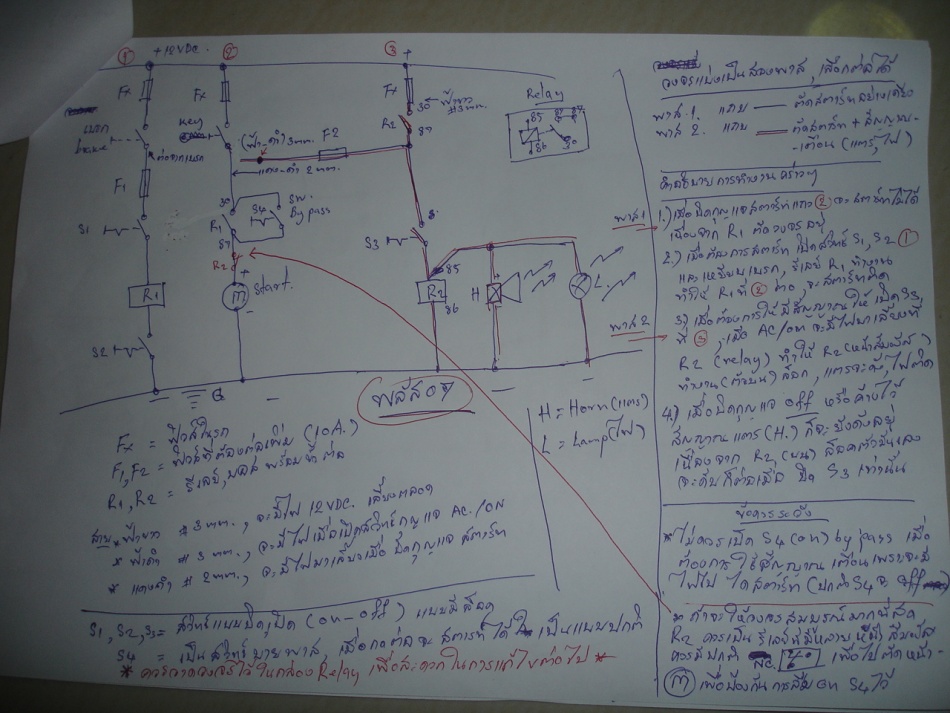 ① +12VDC. ② ③ +
Fx Fx Fx
เบรก
brake
Key
ต่อจากเบรก
(ฟ้า-ดำ) 3 mm. F2
แดง-ดำ 2 mm.
30 ฟ้าขาว
#3 mm.
R2 87
Relay
85 87
86 30
F1
S1
30
R1
87
S4
SW.
By pass
R2
M Start.
+
-
R1
S2
S3
85
R2
86
H
L
G
พลัส 09
H = Horn (แตร)
L = Lamp (ไฟ)
Fx = ฟิวส์ในรถ
F1, F2 = ฟิวส์ที่ต้องต่อเพิ่ม (10A.)
R1, R2 = รีเลย์, พร้อมที่ต่อ
สาย * ฟ้าขาว # 3 mm., จะมีไฟ 12VDC. เลี้ยงตลอด
* ฟ้าดำ # 3 mm., จะมีไฟเมื่อเปิดสวิทช์กุญแจ AC./ON
* แดงดำ # 2 mm., จะมีไฟมาเลี้ยงเมื่อ บิดกุญแจ สตาร์ท
S1, S2, S3 = สวิทช์แบบปิด, เปิด (on-off) แบบมีล็อค
S4 = เป็นสวิทช์ บายพาส, เมื่อกดต่อจะ สตาร์ทได้ เป็นแบบปกติ
* ควรวาดวงจรไว้ในกล่อง Relay เพื่อสะดวกในการแก้ไขต่อไป *
วงจรแบ่งเป็นสองพาส, เลือกต่อได้
พาส.1. แถบ —— ตัดสตาร์ทอย่างเดียว
พาส 2. แถบ —— ตัดสตาร์ท + สัญญาณ-
-เตือน (แตร, ไฟ)
คำอธิบายการทำงานคร่าวๆ
พาส 1
1.) เมื่อบิดกุญแจสตาร์ทแถว ② จะสตาร์ทไม่ได้
เนื่องจาก R1 ตัดวงจรอยู่
2.) เมื่อต้องการสตาร์ท เปิดสวิทช์ S1, S2 ①
และเหยียบเบรก, รีเลย์ R1 ทำงาน
ทำให้ R1 ที่ ② ต่อ, จะสตาร์ทติด
พาส 2
3) เมื่อต้องการให้มีสัญญาณ ให้เปิด S3,
ที่ ③, เมื่อ AC/on จะมีไฟมาเลี้ยงที่
R2 (relay) ทำให้ R2 (หน้าสัมผัส)
ทำงาน (ตัวบน) ล็อค, แตรจะดัง, ไฟติด
4.) เมื่อบิดกุญแจ off หรือค้างไว้
สัญญาณแตร (H.) ก็จะ ยังดังอยู่
เนื่องจาก R2 (บน) ล็อคตัวมันเอง
จะดับก็ต่อเมื่อ ปิด S3 เท่านั้น
ข้อควรระวัง
* ไม่ควร เปิด S4 (on) by pass เมื่อ
ต้องการ ใช้สัญญาณ เตือน เพราะจะมี
ไฟไป ไดสตาร์ท (ปกติ S4 จะ off)
* ถ้าจะให้วงจร สมบูรณ์มากที่สุด
R2 ควรเป็น รีเลย์ที่มีหลายหน้า สัมผัส
ควรมีปกติ NC. เพื่อไปตัดหน้า-
M เพื่อป้องกัน การลืม on S4 ไว้